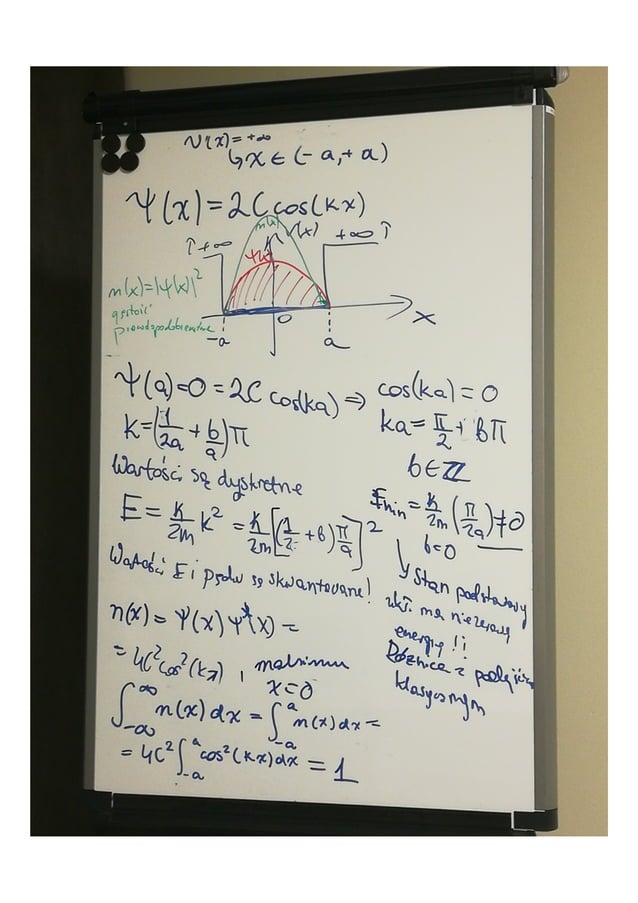 V(x) = +∞
↳ x ∈ (-a, +a)
Ψ(x) = 2C cos(kx)
n(x)
↑+∞
V(x)
+∞ ↑
Ψ(x)
n(x) = |Ψ(x)|²
gęstość
prawdopodobieństwa
-a
0
a
x
Ψ(a) = 0 = 2C cos(ka) ⇒ cos(ka) = 0
k = (1/2a + b/a)π
ka = π/2 + bπ
b ∈ ℤ
Wartości są dyskretne
E = ħ/2m k² = ħ/2m [(1/2 + b) π/a]²
Wartości E i pędu są skwantowane!
E min = ħ/2m (π/2a) ≠ 0
b = 0
↳ Stan podstawowy
ukł. ma niezerową
energię!!
Różnica z podejściem
klasycznym
n(x) = Ψ(x) Ψ*(x) =
= 4C² cos²(kx), maksimum
x = 0
∫_{-∞}^{∞} n(x) dx = ∫_{-a}^{a} n(x) dx =
= 4C² ∫_{-a}^{a} cos²(kx) dx = 1